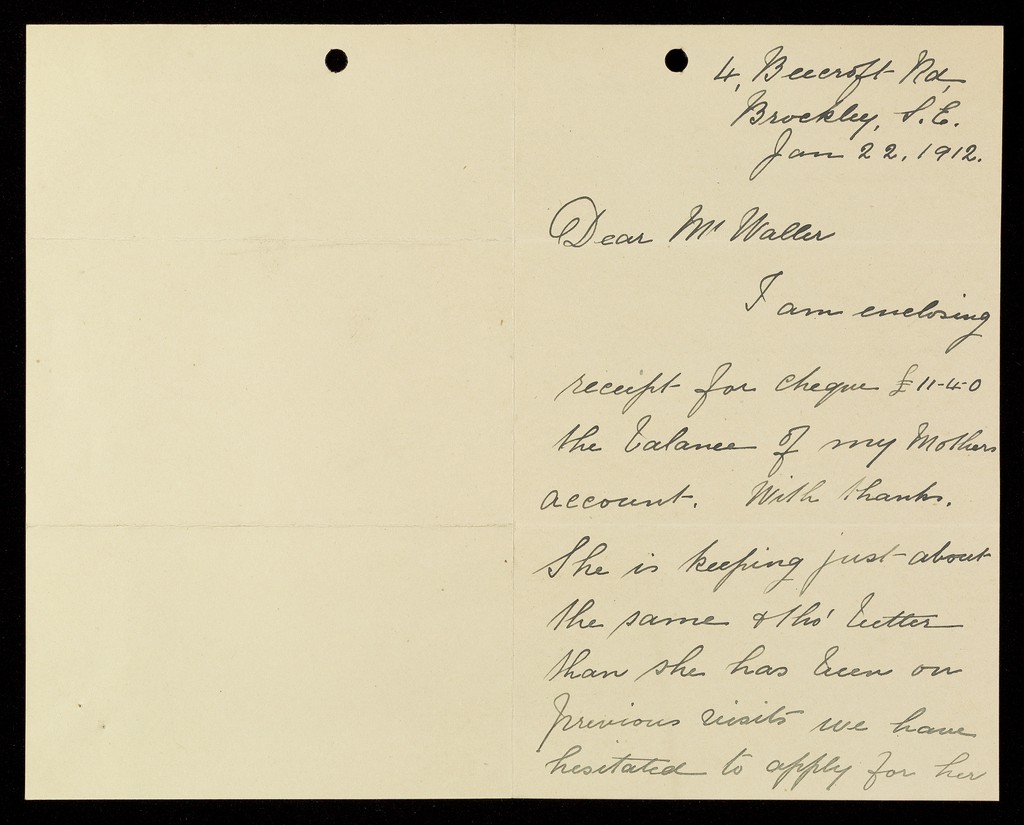 4, Beecroft Rd,
Brockley, S.E.
Jan 22. 1912.
Dear Mr Waller
I am enclosing
receipt for cheque £11-4-0
the balance of my Mothers
account. With thanks.
She is keeping just about
the same & tho' better
than she has been on
previous visits we have
hesitated to apply for her